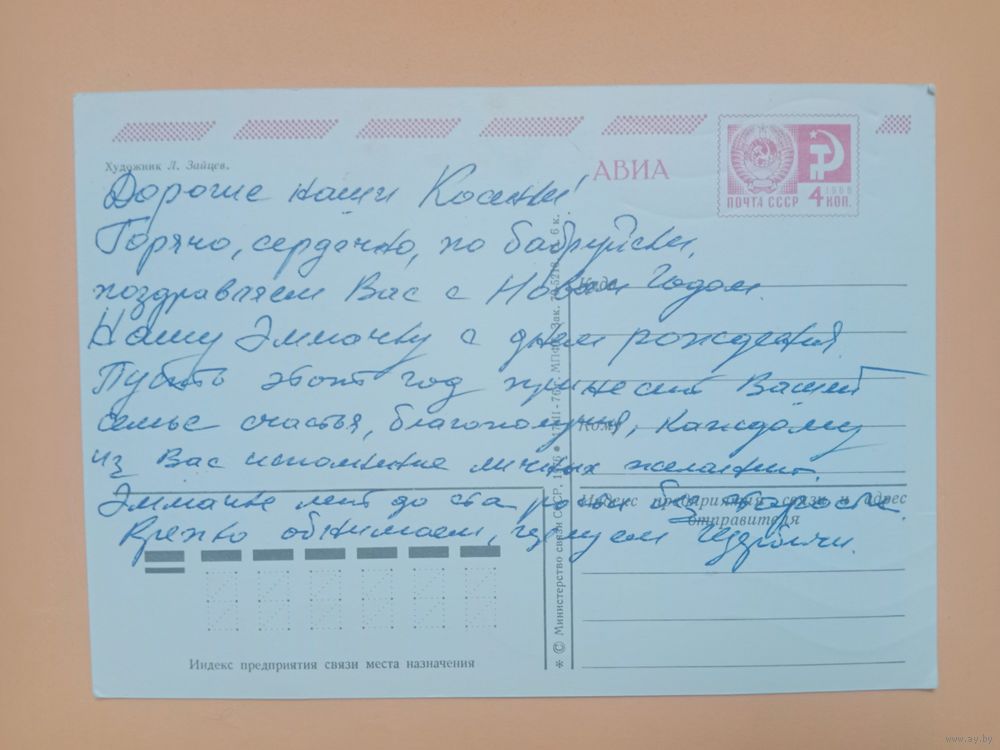 Художник Л. Зайцев.
АВИА
ПОЧТА СССР 4 КОП.
1966
Дорогие наши
Горячо, сердечно, по бабруйски,
поздравляем Вас с Новым Годом.
Нашу Эммочку с днем рождения
Пусть этот год принесет Вашей
семье счастья, благополучия, каждому
из Вас исполнение личных желаний.
Эммочке лет до ста расти без старости.
Крепко обнимаем, целуем
Куда
Кому
Индекс предприятия связи и адрес
отправителя
Индекс предприятия связи места назначения
* © Министерство связи СССР. 1976
6 к.
www.ay.by